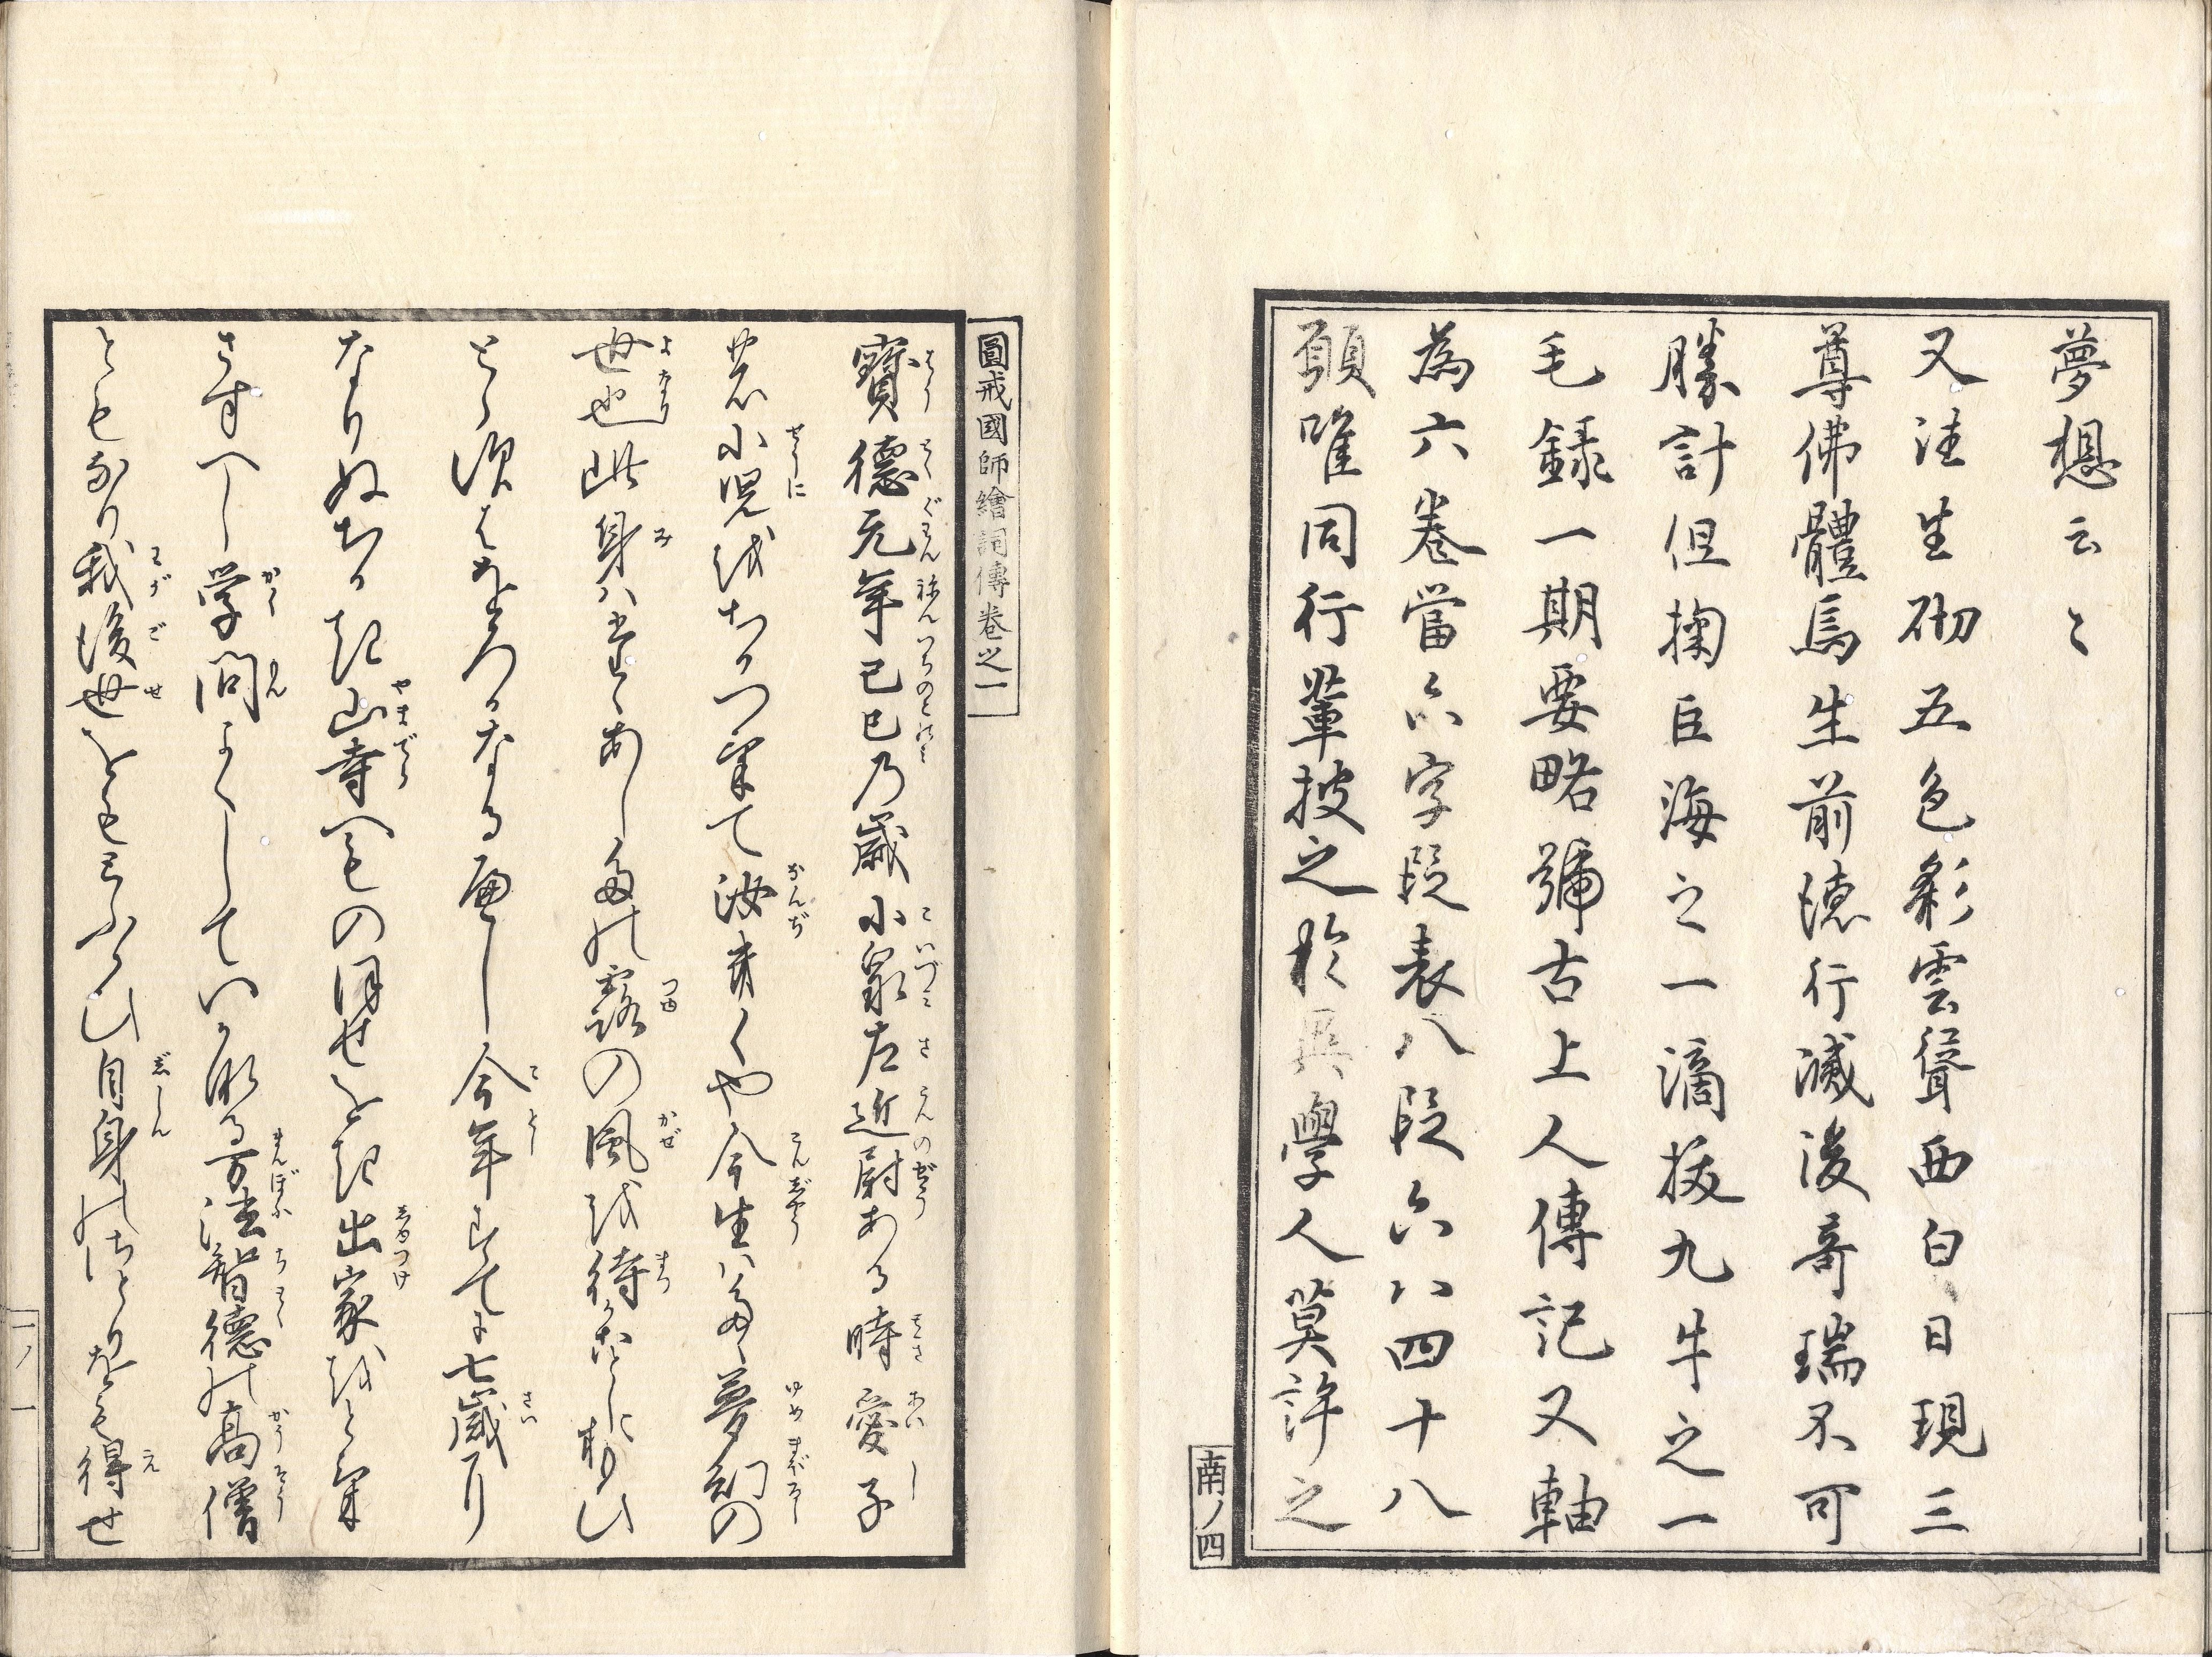 夢想云々
又往生砌五色彩雲聳西白日現三
尊佛體焉生前德行滅後奇瑞不可
勝計但掬巨海之一滴拔九牛之一
毛録一期要略號古上人傳記又軸
為六卷當六字段表八段六八四十八
願唯同行輩披之於異學人莫許之
南ノ四
圓戒國師繪詞傳卷之一
寶德元年己巳乃歳小泉左近尉ある時愛子
の小児をちかつけて汝きくや今生ハ夢幻の
世也此身ハあたし野の露の風を待
今年すてに七歳
なりぬちかき山寺へものほせをき出家をとけ
さすへし学問よくしていかなる万法智德の高僧
ともなり我後世をもとふらひ自身のさとりをも得せ
一ノ一